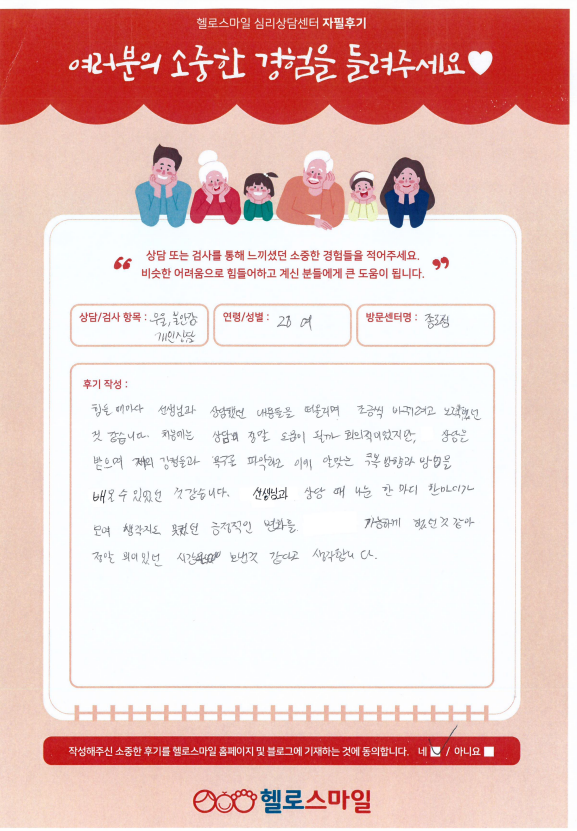 헬로스마일 심리상담센터 자필후기
여러분의 소중한 경험을 들려주세요
“ 상담 또는 검사를 통해 느끼셨던 소중한 경험들을 적어주세요. ”
비슷한 어려움으로 힘들어하고 계신 분들에게 큰 도움이 됩니다.
상담/검사 항목 : 우울, 불안감
개인상담
연령/성별 : 28 여
방문센터명 : 종로점
후기 작성 :
힘들 때마다 선생님과 상담했던 내용들을 떠올리며 조금씩 바뀌려고 노력했던
것 같습니다. 처음에는 상담이 정말 도움이 될까 회의적이었지만, 상담을
받으며 저의 감정들과 욕구를 파악하고 이에 알맞는 극복 방향과 방법을
배울 수 있었던 것 같습니다. 선생님과 상담 때 나눈 한 마디 한마디가
모여 생각지도 못했던 긍정적인 변화를 가능하게 했던 것 같아
정말 의미있던 시간을 보낸것 같다고 생각합니다.
작성해주신 소중한 후기를 헬로스마일 홈페이지 및 블로그에 기재하는 것에 동의합니다. 네 / 아니요
헬로스마일